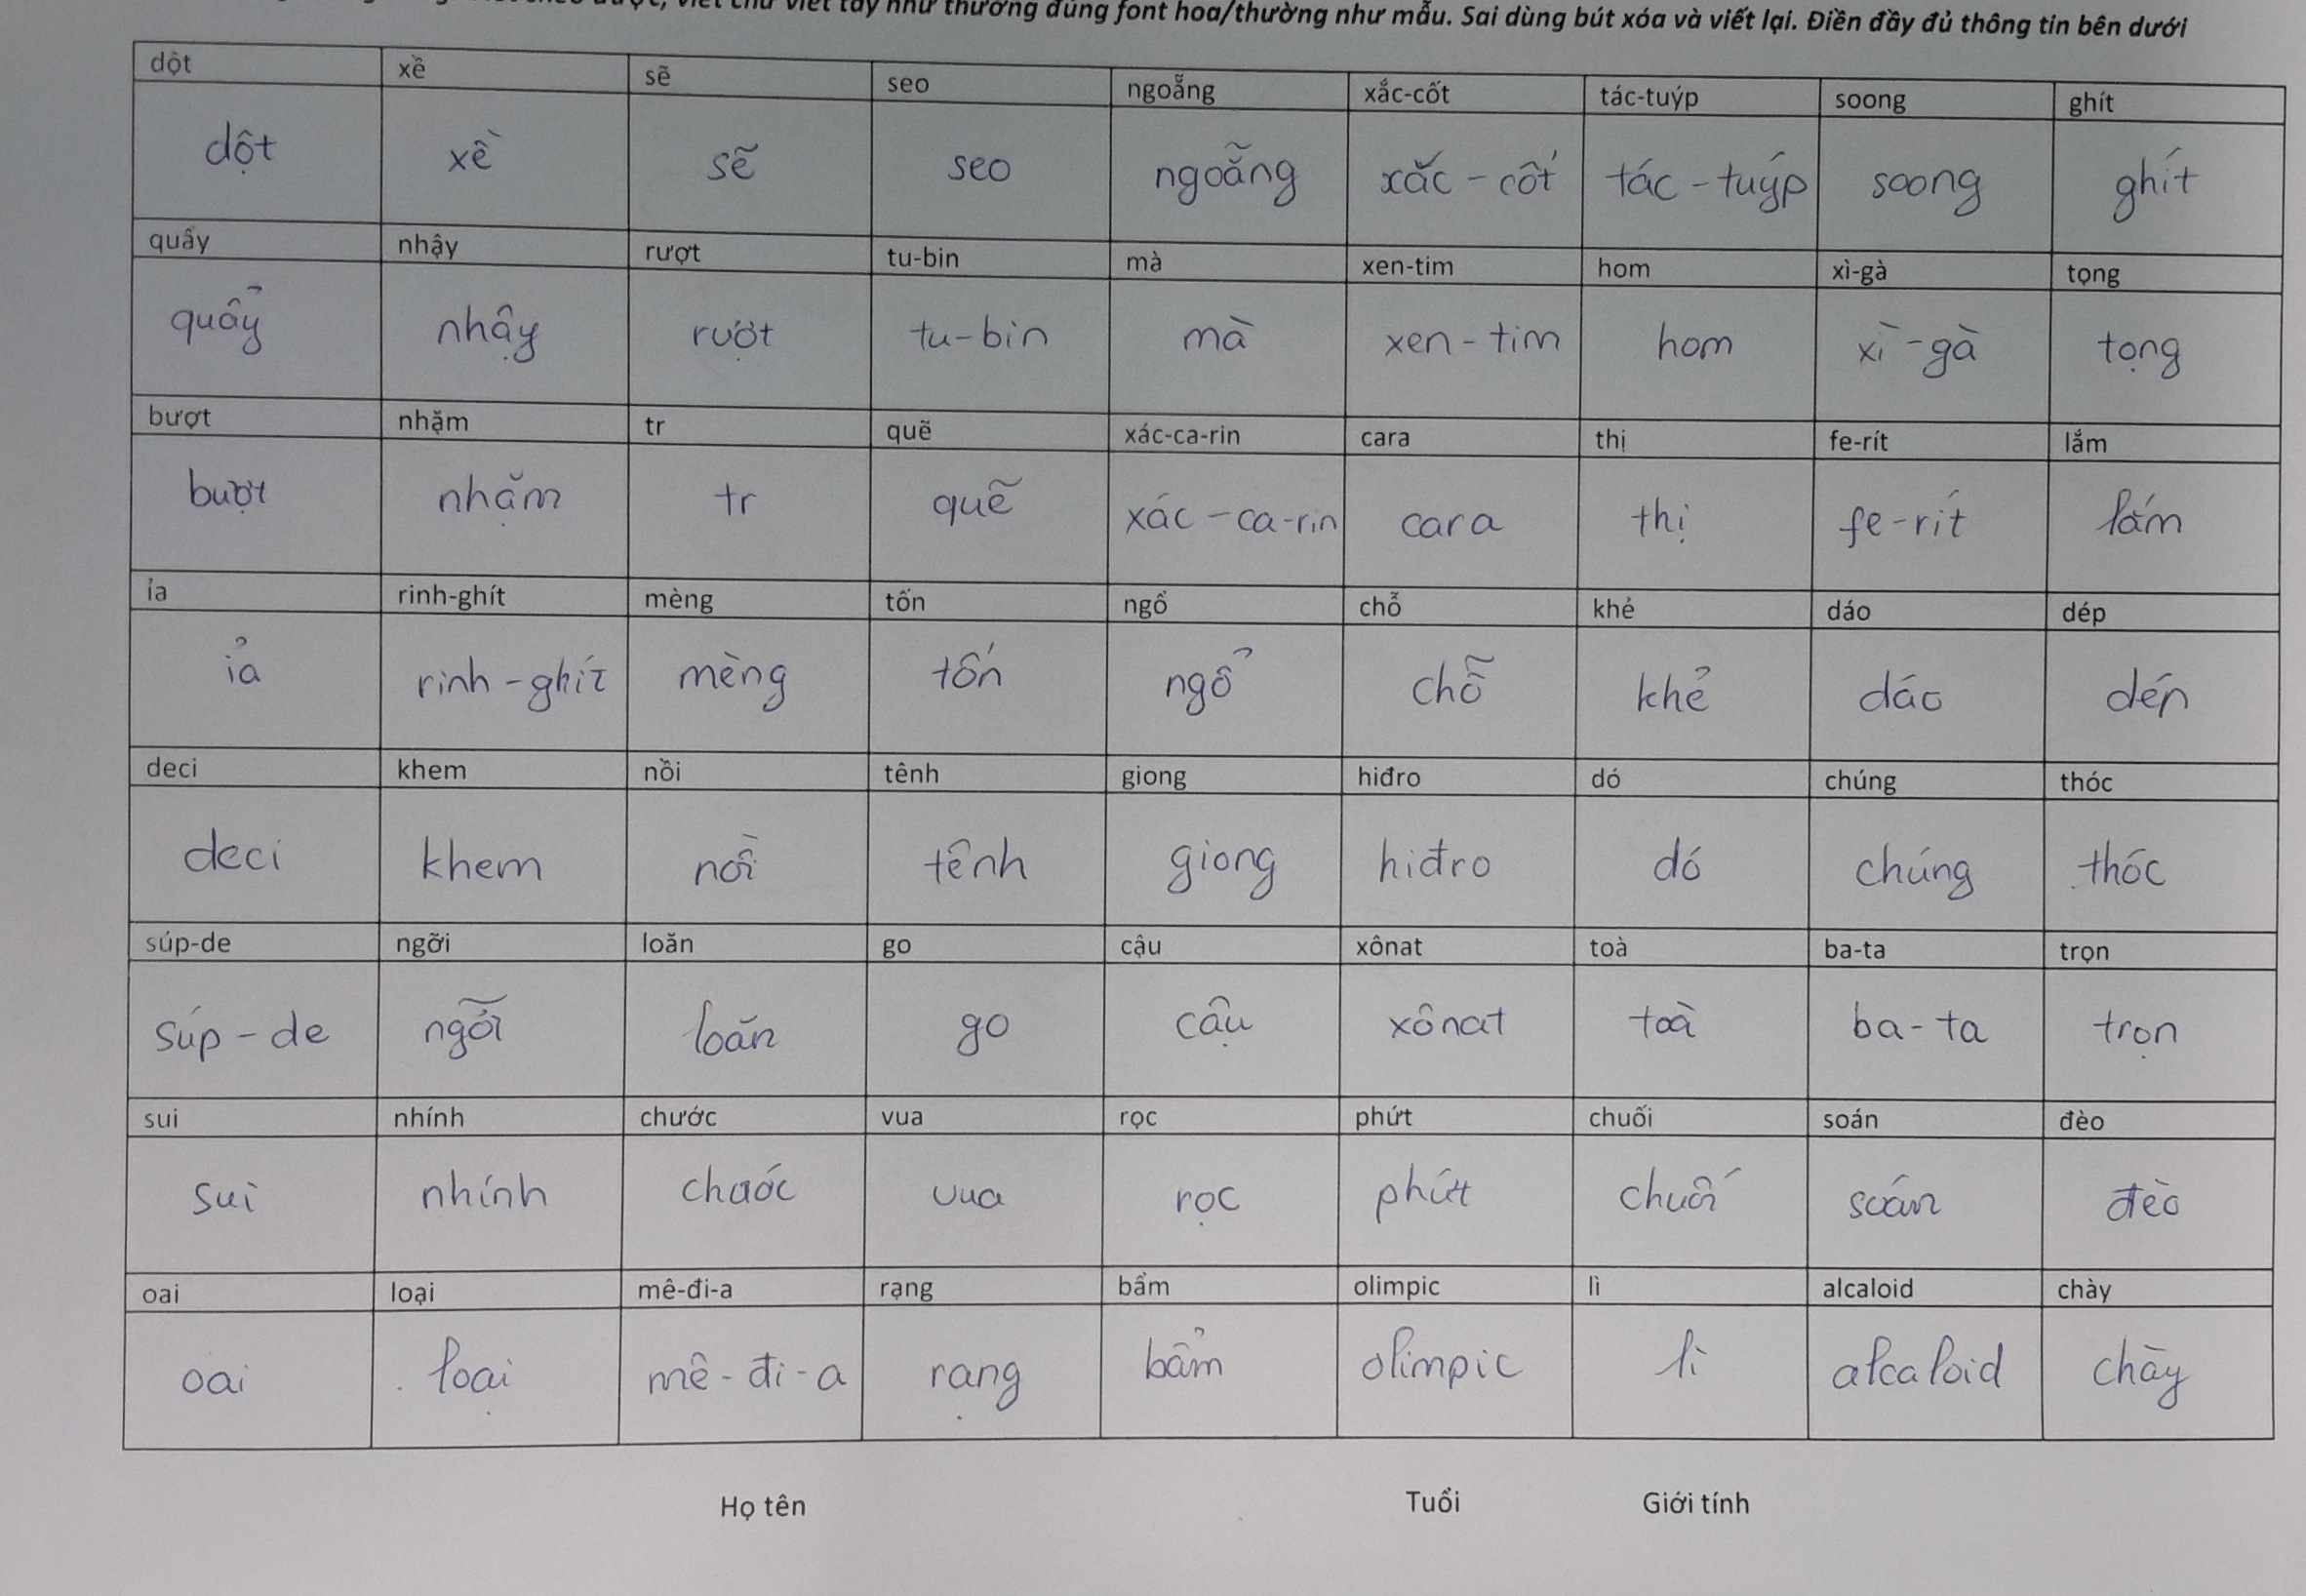 viết chữ viết tay như thường đúng font hoa/thường như mẫu. Sai dùng bút xóa và viết lại. Điền đầy đủ thông tin bên dưới
dột xề sẽ seo ngoẵng xắc-cốt tác-tuýp soong ghít
dột xề sẽ seo ngoẵng xắc-cốt tác-tuýp soong ghít
quẩy nhậy rượt tu-bin mà xen-tim hom xì-gà tọng
quẩy nhậy rượt tu-bin mà xen-tim hom xì-gà tọng
bượt nhặm tr quẽ xác-ca-rin cara thị fe-rít lắm
bượt nhặm tr quẽ xác-ca-rin cara thị fe-rít lắm
ỉa rinh-ghít mèng tốn ngổ chỗ khẻ dáo dép
ỉa rinh-ghít mèng tốn ngổ chỗ khẻ dáo dép
deci khem nồi tênh giong hiđro dó chúng thóc
deci khem nồi tênh giong hiđro dó chúng thóc
súp-de ngỡi loăn go cậu xônat toà ba-ta trọn
súp-de ngỡi loăn go cậu xônat toà ba-ta trọn
sui nhính chước vua rọc phứt chuối soán đèo
sui nhính chước vua rọc phứt chuối soán đèo
oai loại mê-đi-a rạng bẩm olimpic lì alcaloid chày
oai loại mê-đi-a rạng bẩm olimpic lì alcaloid chày
Họ tên Tuổi Giới tính